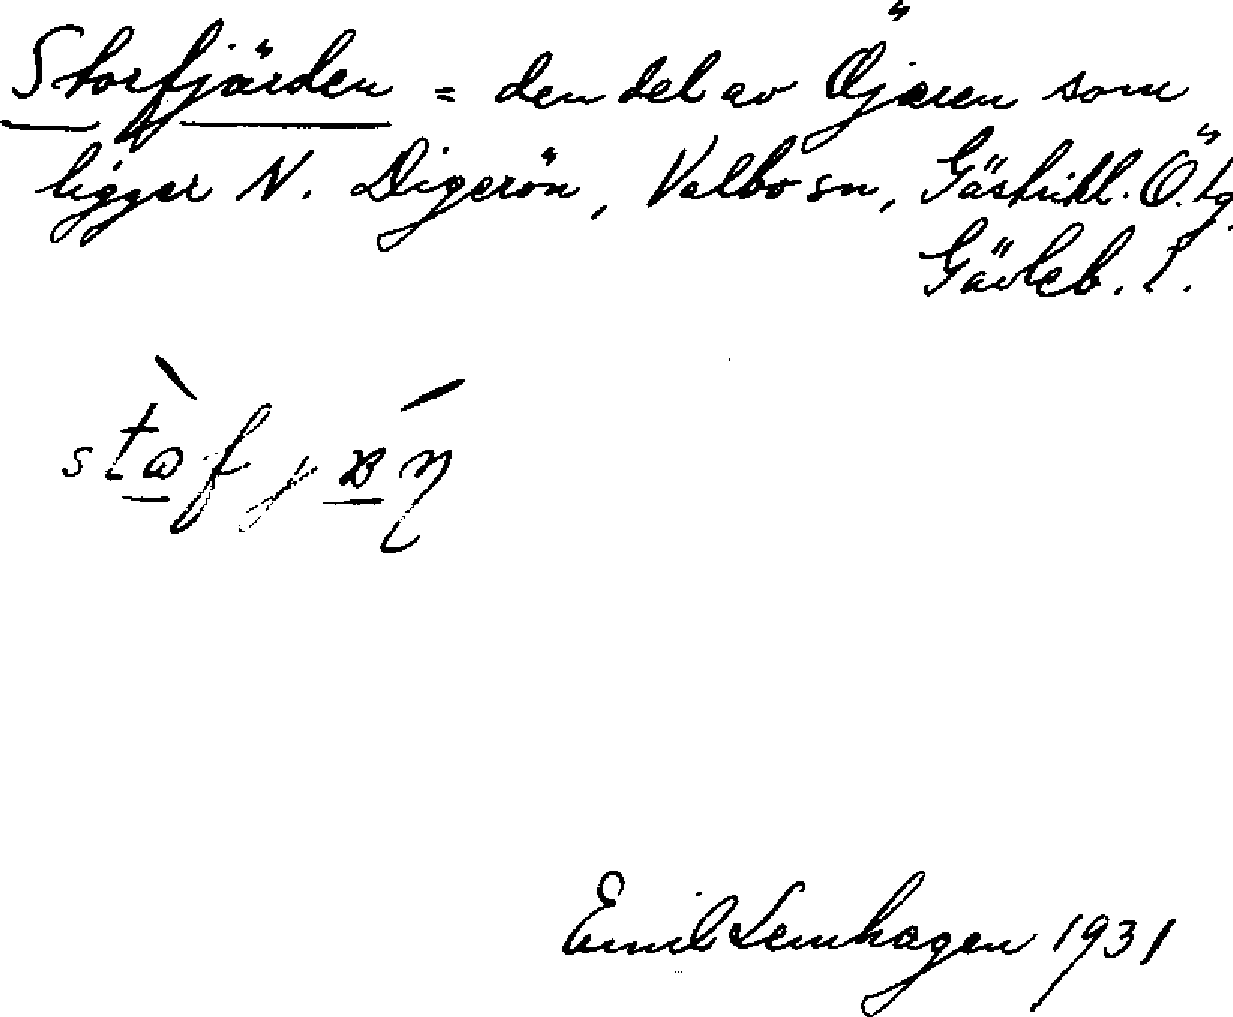 Storfjärden = den del av Öjaren som
ligger N. Digerön, Valbo sn, Gästrikl. Ö. tg.
Gävleb. l.
Emil Lemhagen 1931